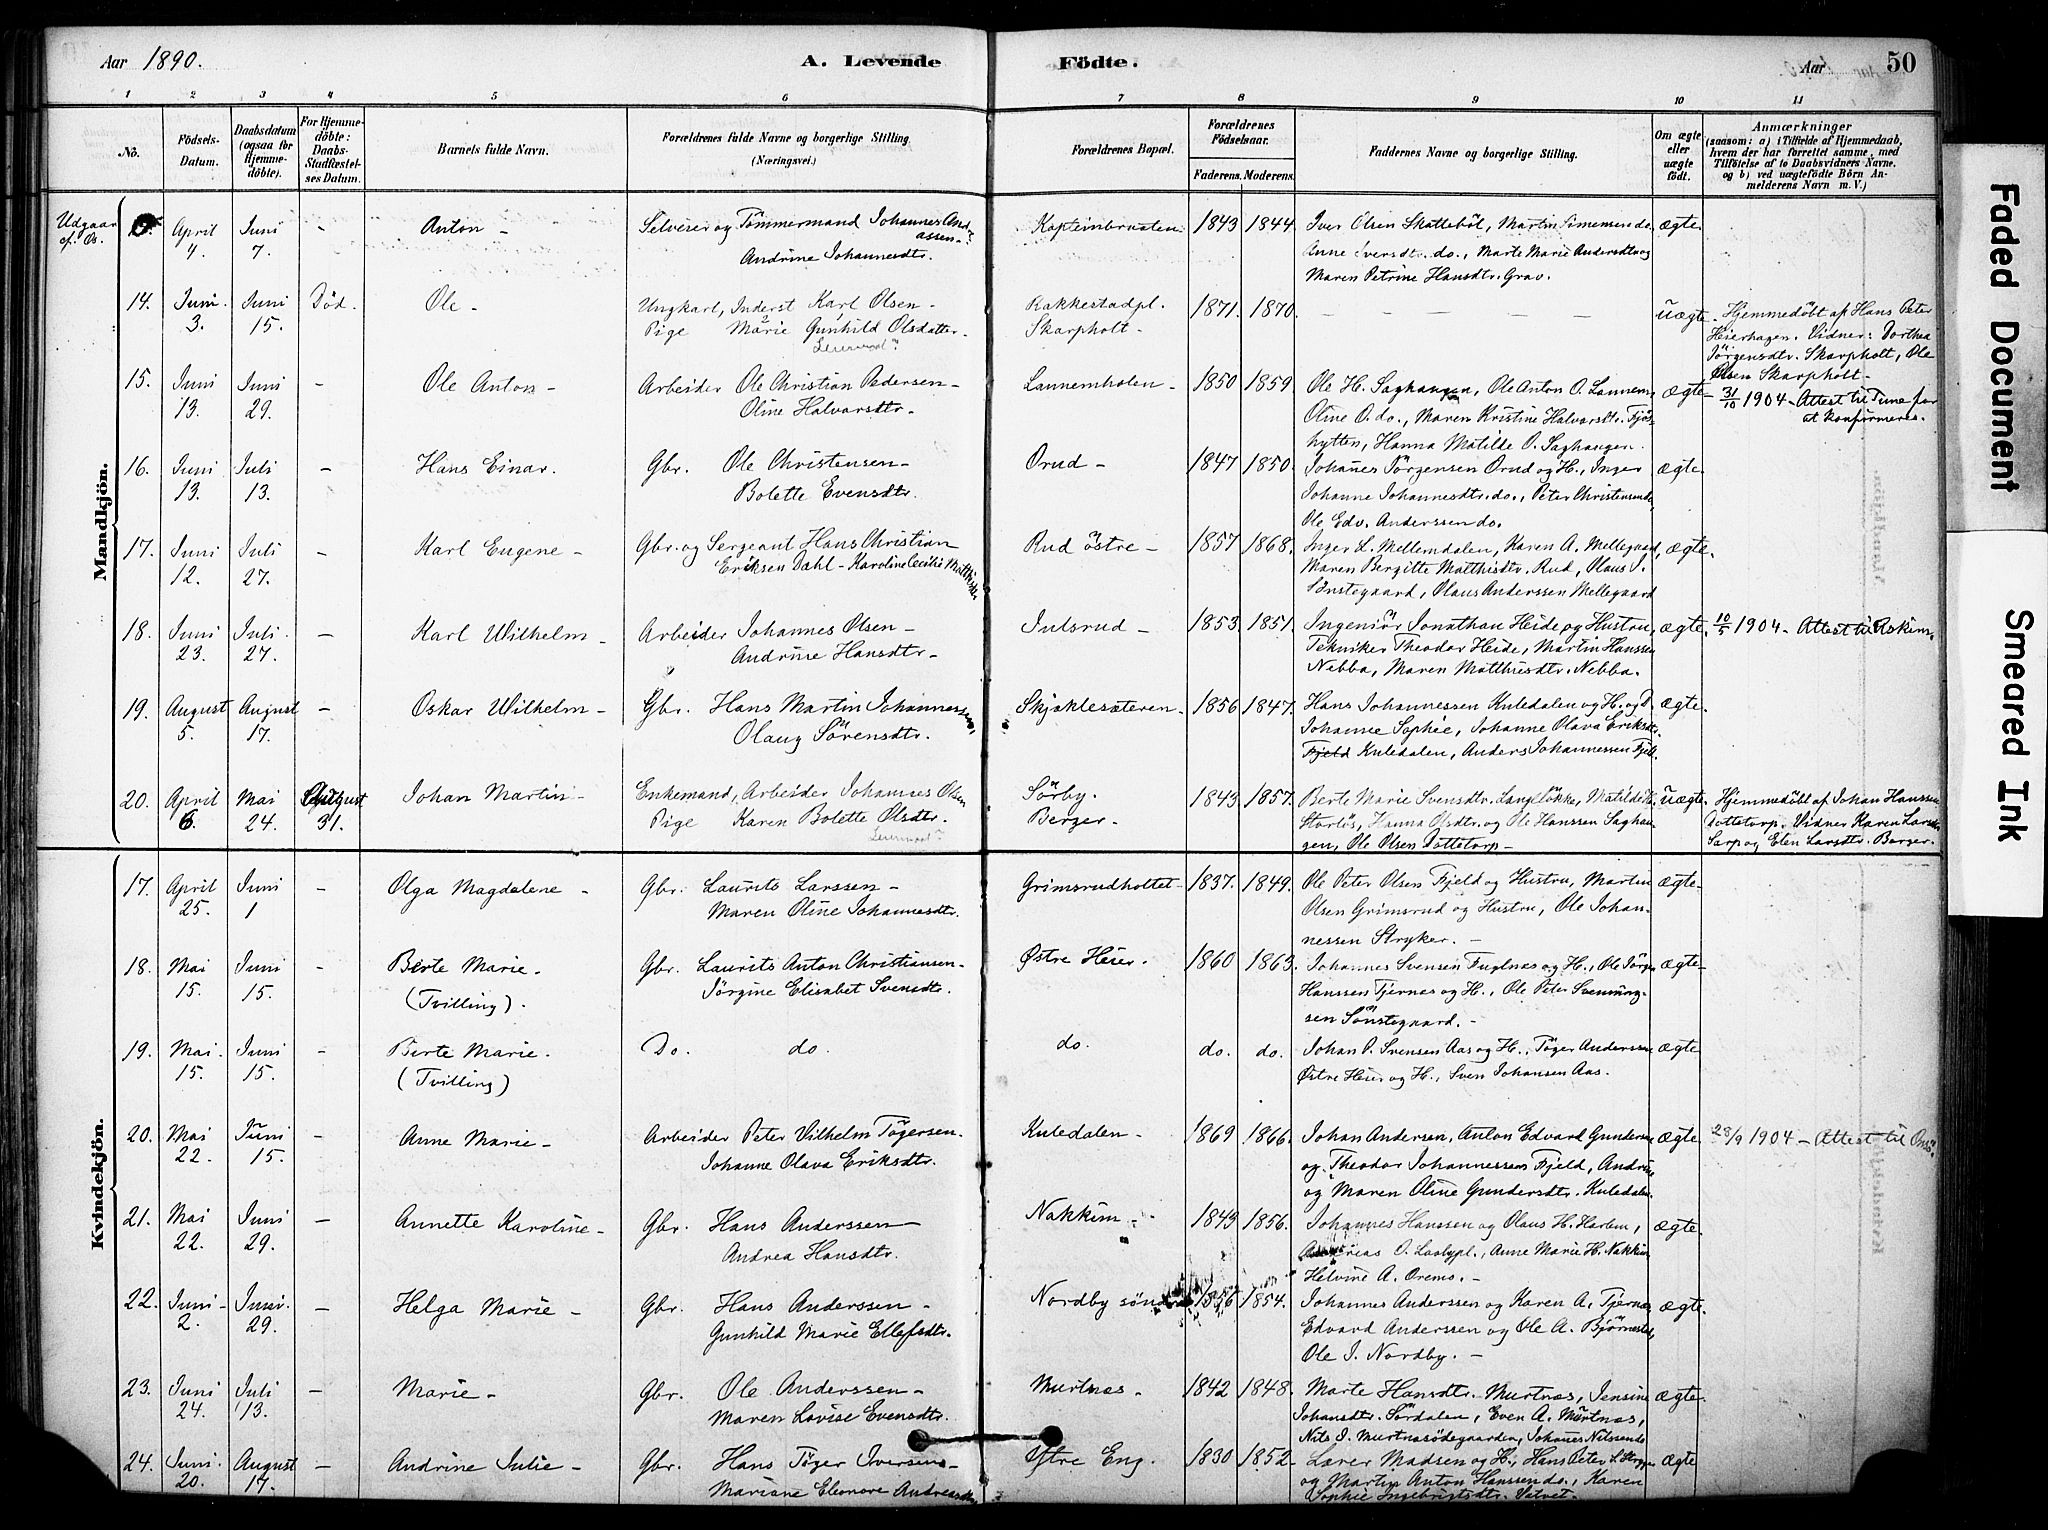 Aar 1890.
A. Levende
Födte.
Aar
50
1 2 3 4 5 6 7 8 9 10 11
No.
Födsels-Datum.
Daabsdatum (ogsaa for Hjemmedöbte).
For Hjemmedöbte: Daabs-Stadfæstelses Datum.
Barnets fulde Navn.
Forældrenes fulde Navne og borgerlige Stilling (Næringsvei.)
Forældrenes Bopæl.
Forældrenes Födselsaar.
Faderens. Moderens.
Faddernes Navne og borgerlige Stilling.
Om ægte eller uægte födt.
Anmærkninger
(saasom: a) i Tilfælde af Hjemmedaab, hvem der har forrettet samme, med Tilföielse af to Daabsvidners Navne. og b) ved uægtefödte Börn Anmelderens Navn m. V.)
Mandkjön.
Udgaar
April 4. Juni 7. - Anton - Selveier og Tömmermand Johannes And-
assen-
Andrine Johannesdtr. Kapteinbraaten 1843 1844. Iver Olsen Skatteböl, Martin Simensen do, ægte
Anne Iversdtr. do., Marte Marie Andersdtr og
Maren Petrine Hansdtr. Grav.
14. Juni 3. Juni 15. Död. Ole - Ungkarl, Inderst Karl Olsen -
Pige Marie Gunhild Olsdatter
Bakkestadpl. Skarpholt - 1871. 1870. - - - - uægte. Hjemmedöbt af Hans Peter
Heierhagen. Vidner: Dorthea
Jörgensdtr. Skarpholt, Ole
Olsen Skarpholt -
15. Juni 13. Juni 29. - Ole Anton - Arbeider Ole Christian Pedersen -
Oline Halvorsdtr. Lannemholen - 1850 1859. Ole H. Saghaugen, Ole Anton O. Lannem, ægte - 31/10 1904 - Attest til Tune for
at konfirmeres.
Oline O. do., Maren Kristine Halvorsdtr.
hytten, Hanna Matilde O. Saghaugen.
16. Juni 13. Juli 13. - Hans Einar. Gbr. Ole Christensen -
Bolette Evensdtr. Orud - 1847 1850. Johanes Jörgensen Orud og H., Inger ægte
Johanne Johannesdtr. do., Peter Christensen do,
Ole Edv. Anderssen do.
17. Juni 12. Juli 27. - Karl Eugene - Gbr. og Sergeant Hans Christian
Eriksen Dahl - Karoline Cecilie Matthisdtr
Rud östre - 1857 1868. Inger L. Mellemdalen, Karen A. Mellegaard, ægte.
Maren Bergitte Matthisdtr. Rud, Olaus J.
Sönstegaard, Olaus Anderssen Mellegaard
18. Juni 23. Juli 27. - Karl Wilhelm - Arbeider Johannes Olsen -
Andrine Hansdtr - Julsrud - 1853 1851. Ingeniör Jonathan Heide og Hustru, ægte. 10/5 1904 - Attest til Askim.
Tekniker Theodor Heide, Martin Hanssen
Nebba, Maren Matthisdtr. Nebba.
19. August 5. August 17. - Oskar Wilhelm - Gbr. Hans Martin Johannessen,
Olaug Sörensdtr. Skjoklesæteren - 1856 1847. Hans Johannessen Kuledalen og H. og D. ægte.
Johanne Sophie, Johanne Olava Eriksdtr.
Fjeld Kuledalen, Anders Johannessen Fjell.
20. April 6. Mai 24. August 31. Johan Martin - Enkemand, Arbeider Johannes Olsen
Pige Karen Bolette Olsdtr.
Sörby. Berger. 1843 1857. Berte Marie Svensdtr. Langelökke, Matilde H. uægte. Hjemmedöbt af Johan Hanssen
Vidner Karen Larsdtr
Sarp og Elen Larsdtr. Berger.
Hanna Olsdtr. og Ole Hanssen Saghau-
gen, Ole Olsen
Kvindekjön.
17. April 25. Juni 1 - Olga Magdalene - Gbr. Laurits Larssen -
Maren Oline Johannesdtr. Grimsrudholtet - 1837. 1849. Ole Peter Olsen Fjeld og Hustru, Martin ægte -
Olsen Grimsrud og Hustru, Ole Johan-
nessen Stryker. -
18. Mai 15. Juni 15. - Berte Marie - (Tvilling). Gbr. Laurits Anton Christiansen -
Jörgine Elisabet Svensdtr. Østre Heier. 1860 1863. Johannes Svensen Fuglnæs og H., Ole Jörgen ægte
Hanssen Tjernes og H., Ole Peter Svenning-
sen Sönstegaard. -
19. Mai. 15. Juni 15. - Berte Marie. (Tvilling) Do. do. do. do. do. Johan P. Svensen Aas og H., Töger Anderssen ægte
Østre Heier og H., Sven Johansen Aas.
20. Mai 22. Juni 15. - Anne Marie - Arbeider Peter Vilhelm Tögersen.
Johanne Olava Eriksdtr. Kuledalen - 1869 1866. Johan Andersen, Anton Edvard Gunderse ægte 28/9 1904 - Attest til Onsö.
og Theodor Johannessen Fjeld, Andrine
og Maren Oline Gundersdtr. Kuledalen
21. Mai 22. Juni 29. - Annette Karoline - Gbr. Hans Anderssen -
Andrea Hansdtr. Nakkim - 1849 1856. Johannes Hanssen og Olaus H. Harlem, ægte.
O. Laabypl., Anne Marie H. Nakkim
Helvine A. Oremo. -
22. Juni - 2. Juni. 29. - Helga Marie - Gbr. Hans Anderssen -
Gunhild Marie Ellefsdtr. Nordby söndre 1856 1854. Johannes Anderssen og Karen A. Tjernæs ægte
Edvard Anderssen og Ole A. Björnestad,
Ole J. Nordby. -
23. Juni 24. Juli 13. - Marie - Gbr. Ole Anderssen -
Maren Lovise Evensdtr. Murtnæs - 1842 1848. Marte Hansdtr. Murtnæs, Jensine ægte.
Johansdtr. Sördalen, Even A. Murtnæs,
Nils J. Murtnæsödegaarden, Johanes Nilssen do
24. Juni. 20. August 17. - Andrine Julie - Gbr. Hans Töger Iversen -
Mariane Eleonore Andreasdtr
Ytre Eng. 1830 1852 - Lærer Madsen og H., Hans Peter ægte
og Martin Anton Hanssen do., Karen
Sophie Ingebrigtsdtr. Vatvet.
Faded Document
Smeared Ink